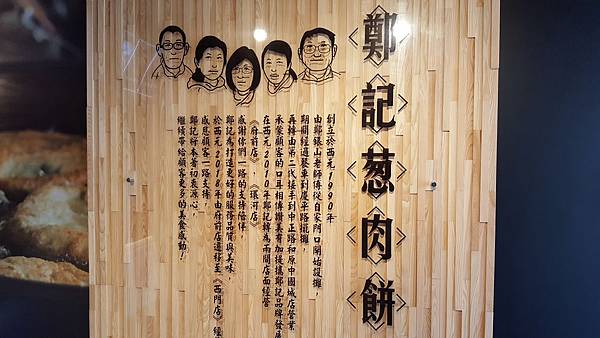 鄭記葱肉餅
創立於西元1990年
由鄭銀山老師傅從自家門口開始設攤，
期間經過餐車到慶平路擺攤，
再轉由第二代接手到中正路和原中國城店營業
承蒙顧客的口耳相傳讚美有加後讓鄭記品牌發展
在西元2010年鄭記轉為兩間店面經營
《府前店》、《環河店》
感謝你們一路的支持陪伴，
鄭記為打造更好的服務品質與美味，
於西元2018年由府前店遷移至《西門店》經
感恩顧客一路支持，
鄭記將本著初衷源心，
繼續帶給顧客更多的美食感動！